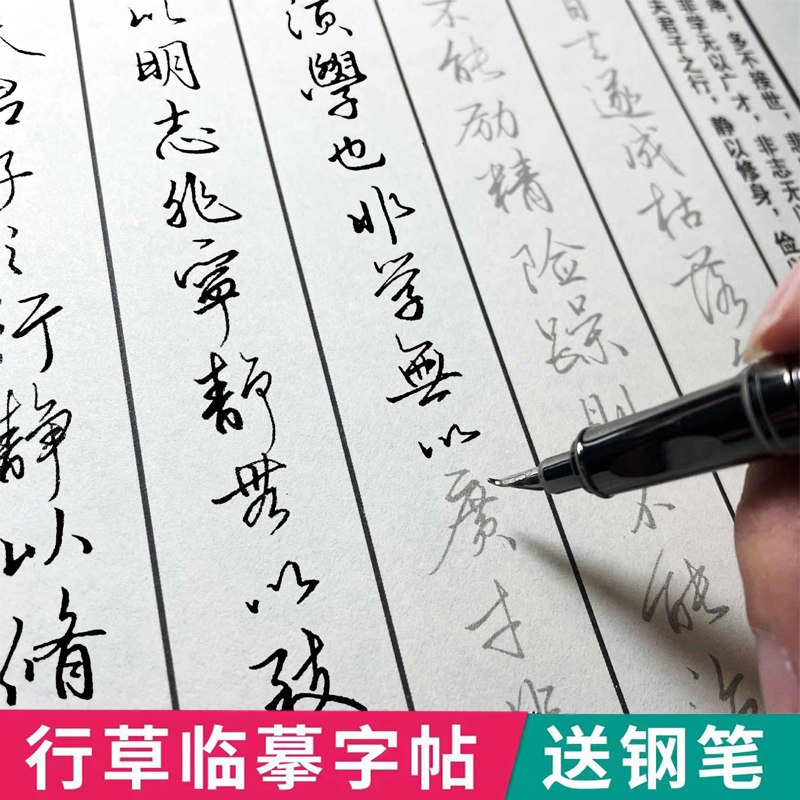 夫君子之行静以脩
以明志非寧静無以致
须學也非学無以廣才非
不能励精险躁则不能治
日去遂成枯落
夫君子之行，静以修身，俭以
非学无以广才，非志无以
落，多不接世，悲
行草临摹字帖
送钢笔